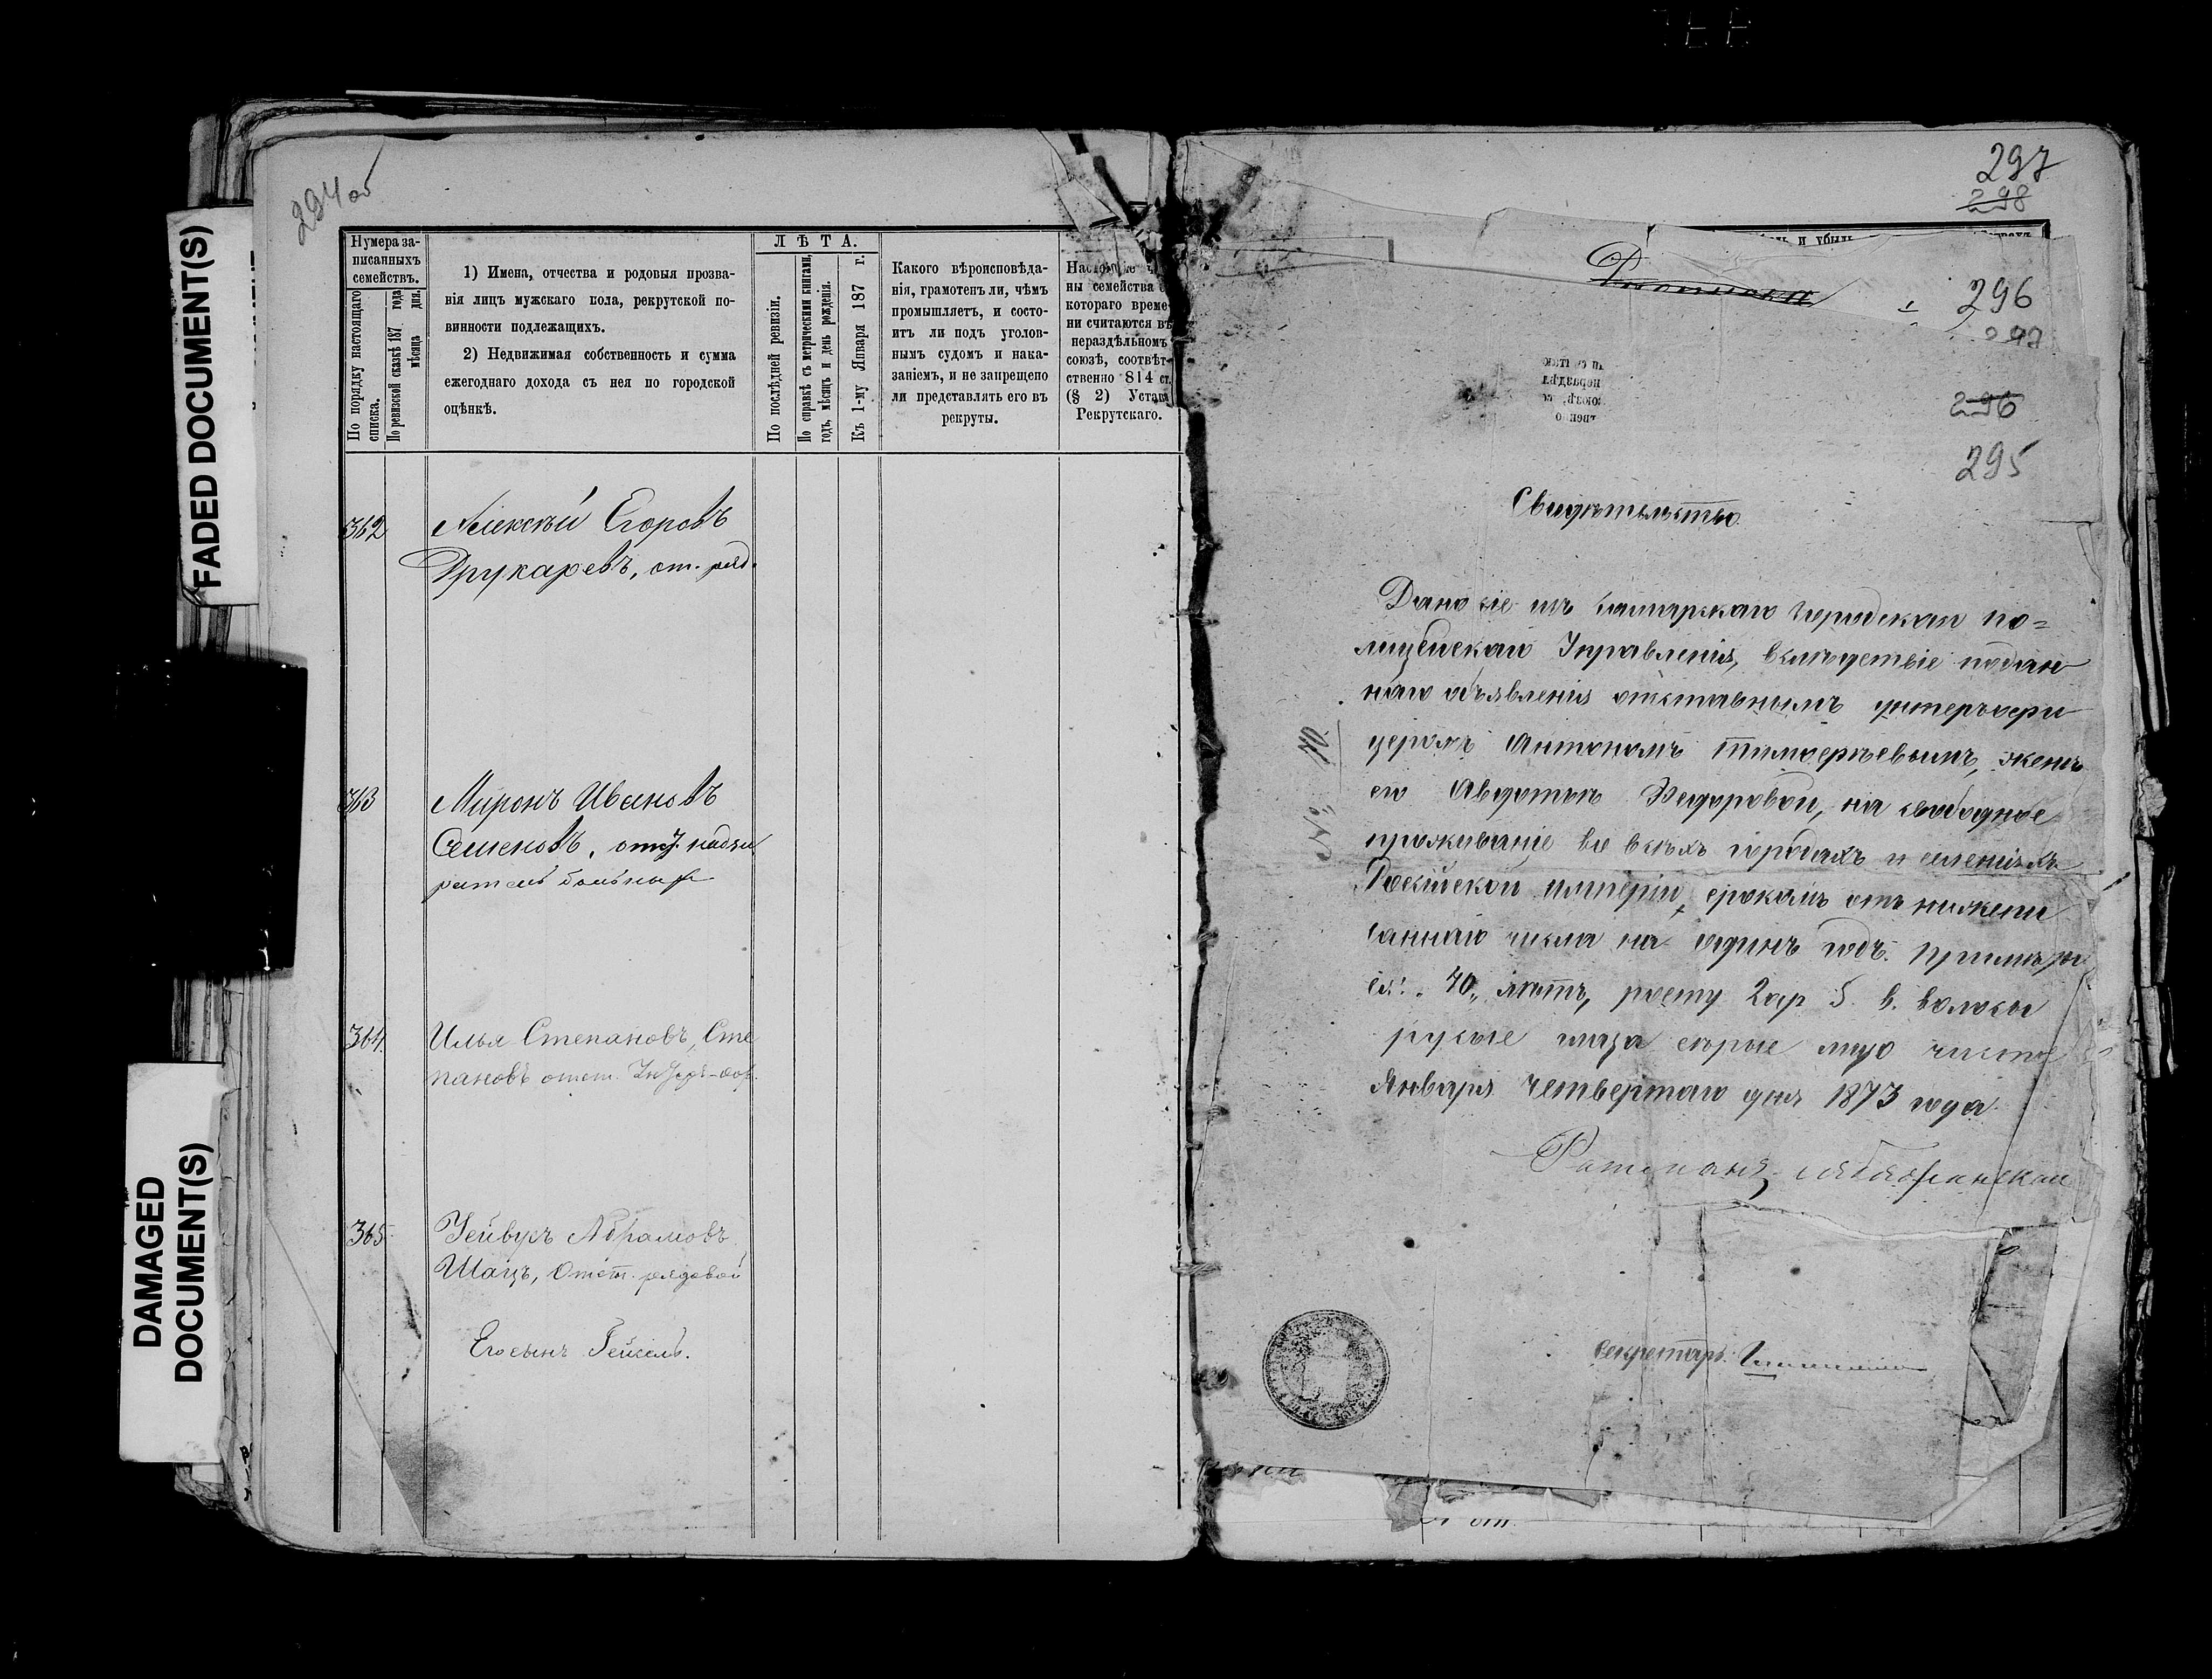 FADED DOCUMENT(S)
DAMAGED
DOCUMENT(S)
294 об
Нумера за-
писанныхъ
семействъ.
По порядку настоящаго
списка.
По ревизской сказкѣ 187 года
мѣсяца дня.
1) Имена, отчества и родовыя прозва-
нія лицъ мужскаго пола, рекрутской по-
винности подлежащихъ.
2) Недвижимая собственность и сумма
ежегоднаго дохода съ нея по городской
оцѣнкѣ.
Л Ѣ Т А.
По послѣдней ревизіи.
По справкѣ съ метрическими книгами,
годъ, мѣсяцъ и день рожденія.
Къ 1-му Января 187 г.
Какого вѣроисповѣда-
нія, грамотенъ ли, чѣмъ
промышляетъ, и состо-
итъ ли подъ уголов-
нымъ судомъ и нака-
заніемъ, и не запрещено
ли представлять его въ
рекруты.
ны семейства
котораго време-
ни считаются въ
нераздѣльномъ
союзѣ, соотвѣт-
ственно 814 ст.
(§ 2) Устава
Рекрутскаго.
362
Алексѣй Егоровъ
Друкаревъ, от. ряд.
363
Миронъ Ивановъ
Семеновъ, отст. надзи
ратель больных
364.
Илья Степановъ, Сте
пановъ отст.
365
Лейбусъ Абрамовъ
Шацъ, Отст. рядовой
Его сынъ Гейсель.
297
298
и убыль
296
297
296
295
Свидѣтельство
Дано сіе изъ городскаго по=
лицейскаго Управленія, вслѣдствіе подан
наго объявленія отставнымъ унтеръофи
церомъ Антономъ Тимофѣевымъ, женѣ
его Авдотьѣ Федоровой, на свободное
проживаніе во всѣхъ городахъ и селеніяхъ
Россійской имперіи, срокомъ отъ нижепи
саннаго числа на одинъ годъ. Примѣты
ея: 40, лѣтъ, росту 2 ар 5 в. волосы
русые глаза сѣрые лицо чистое
Января четвертаго дня 1873 года.
№ 40
Секретарь